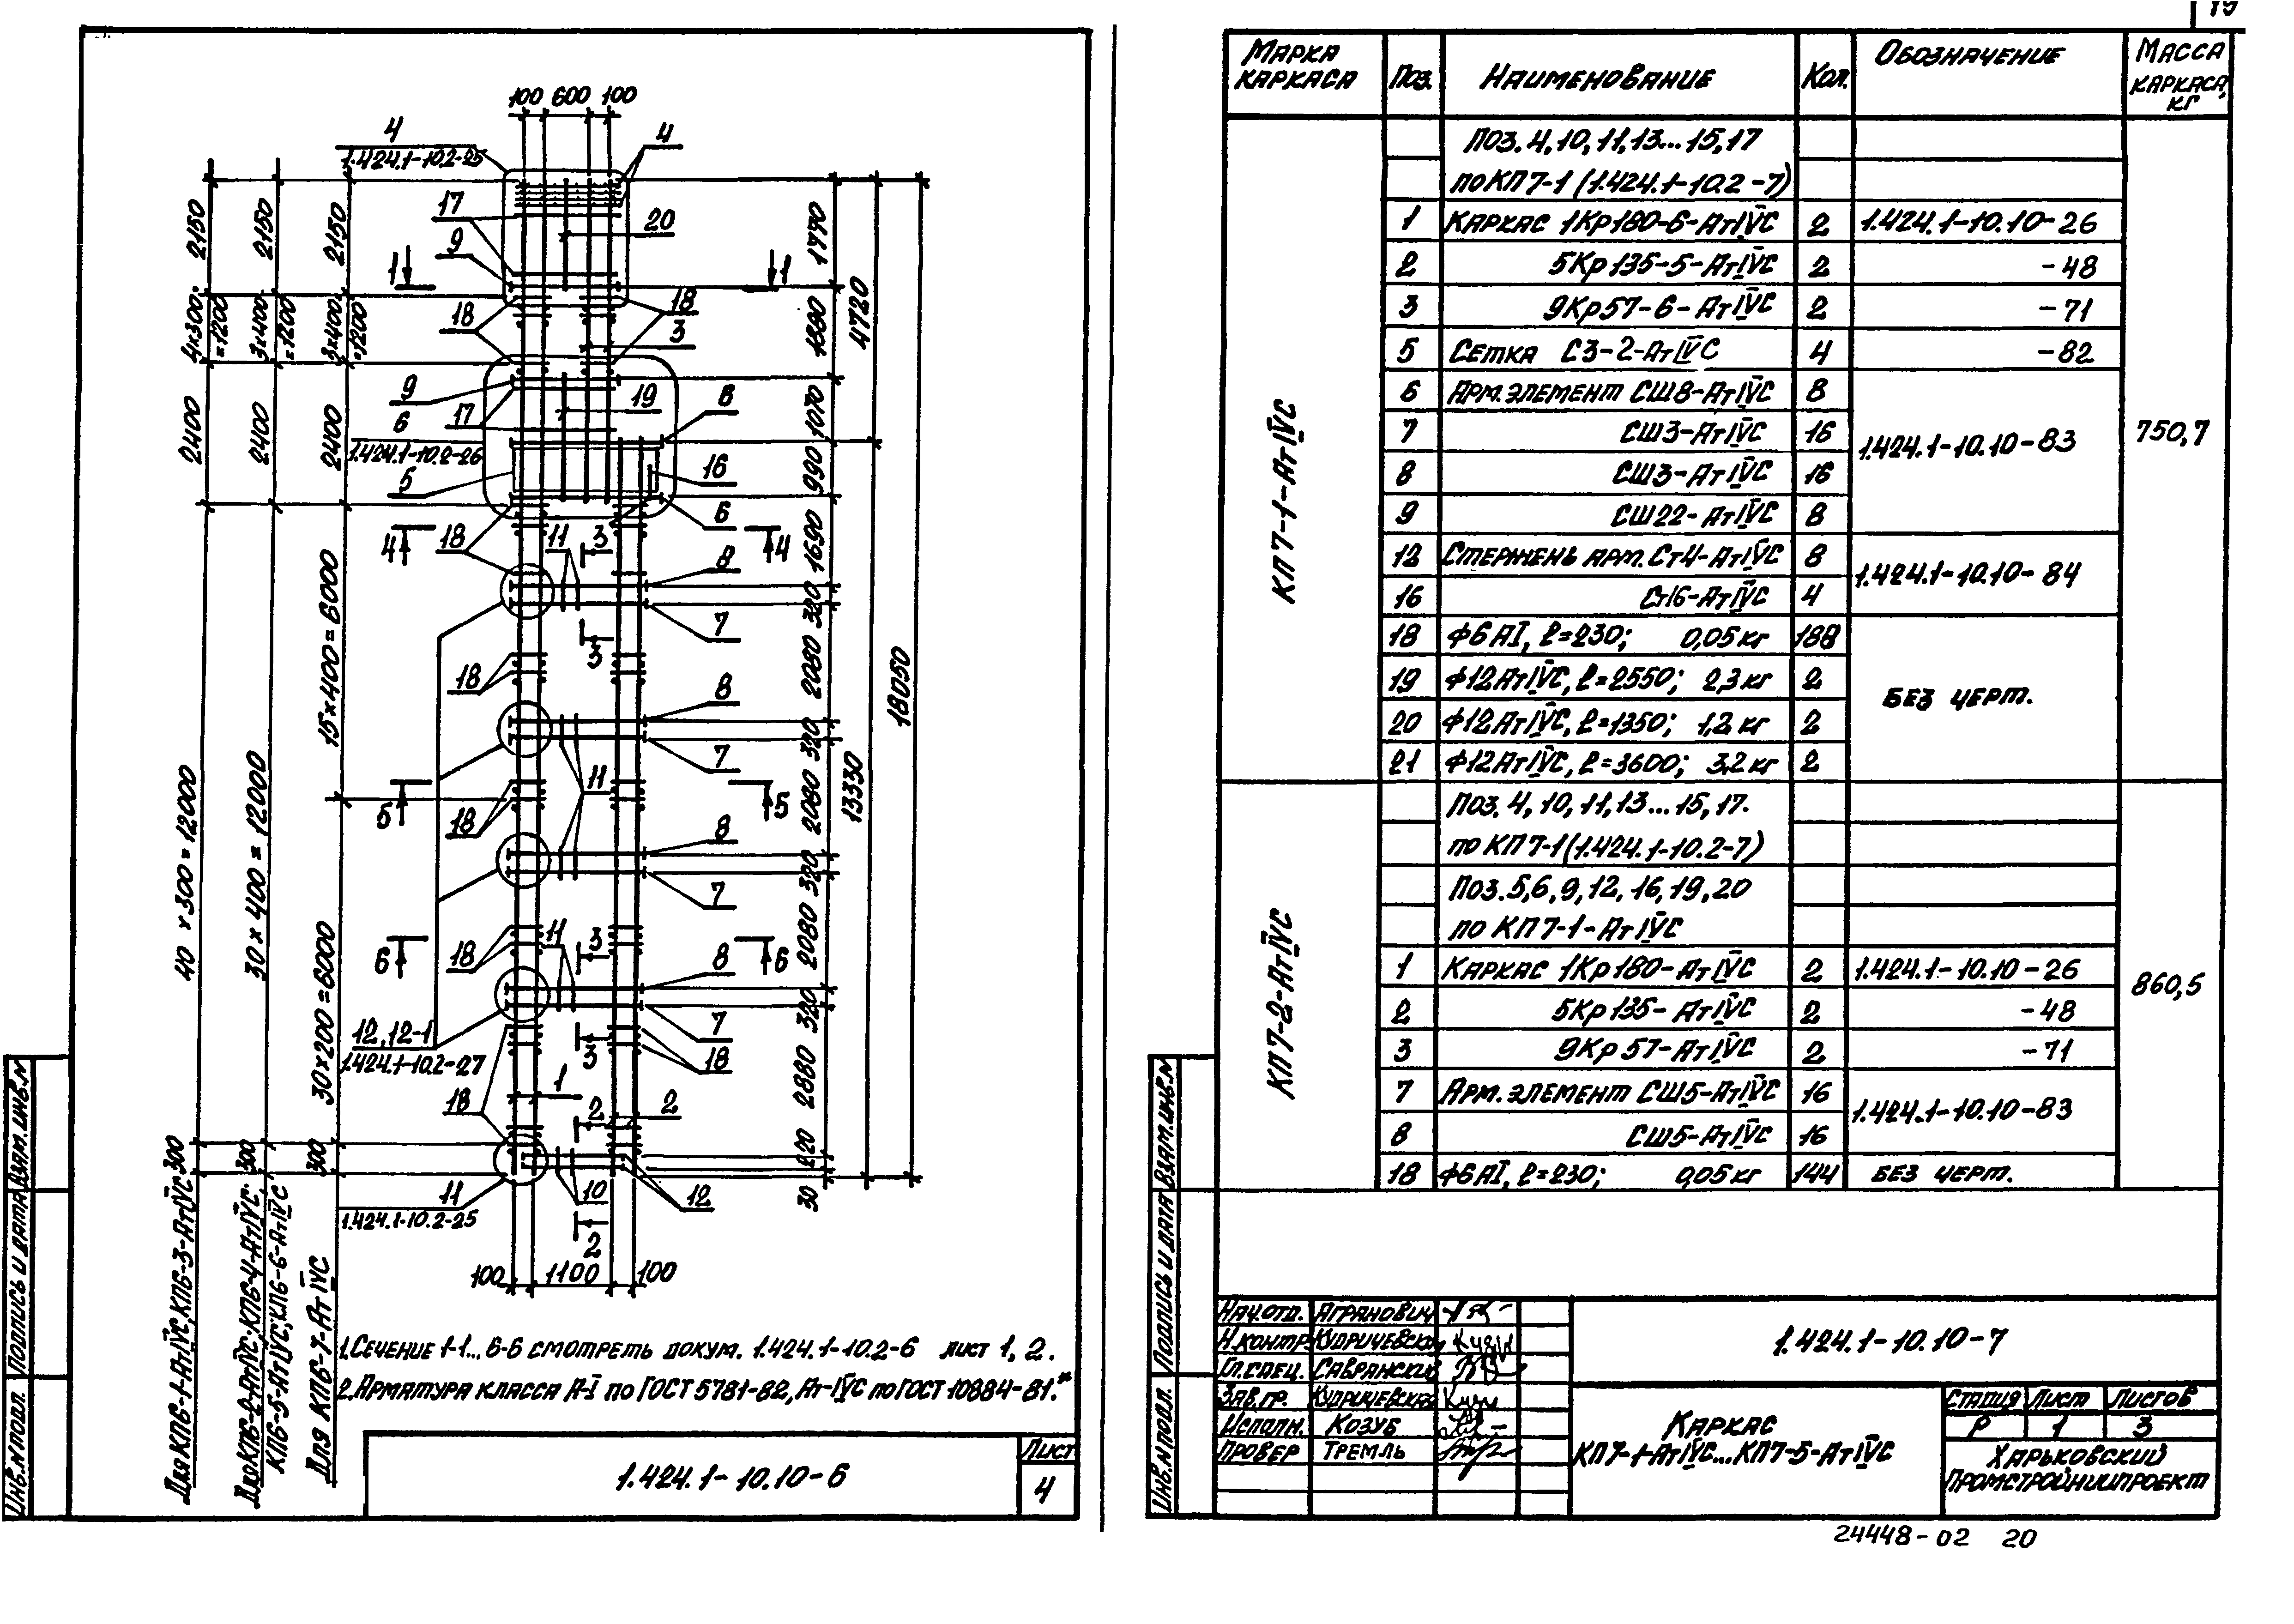 19
100 600 100
4
1.424.1-10.2-25
4
17
20
9
1 1
18
18
3
9
19
6
17
6
1.424.1-10.2-26
16
5
6
4 18 11 3 4
8
7
3
18
8
7
11
5 18 5
8
7
11
6 18 3 6
8
12, 12-1
1.424.1-10.2-27
7
3
18
1
18
2 2
11
1.424.1-10.2-25
10
12
2
100 1100 100
2150
4×300=
=1200
2400
40 × 300 = 12000
300
Для КП6-1-АтIVС, КП6-3-АтIVС
2150
3×400
=1200
2400
30 × 400 = 12000
300
Для КП6-2-АтIVС; КП6-4-АтIVС;
КП6-5-АтIVС; КП6-6-АтIVС
2150
3×400
=1200
2400
15×400=6000
30×200=6000
300
Для КП6-7-АтIVС
1770
1070
990
1690
320
2080
320
2080
320
2080
320
2880
220
30
4720
13330
18050
1. Сечение 1-1... 6-6 смотреть докум. 1.424.1-10.2-6 лист 1, 2.
2. Арматура класса А-I по ГОСТ 5781-82, Ат-IVС по ГОСТ 10884-81.*
1.424.1-10.10-6
Лист
4
Инв.N подл. Подпись и дата Взам.инв.N
Марка каркаса Поз. Наименование Кол. Обозначение Масса каркаса, кг
КП7-1-АтIVС
Поз. 4, 10, 11, 13... 15, 17
по КП7-1 (1.424.1-10.2-7)
1 Каркас 1Кр180-6-АтIVС 2 1.424.1-10.10-26
2 5Кр135-5-АтIVС 2 -48
3 9Кр57-6-АтIVС 2 -71
5 Сетка С3-2-АтIVС 4 -82
6 Арм. элемент СШ8-АтIVС 8
7 СШ3-АтIVС 16 1.424.1-10.10-83 750,7
8 СШ3-АтIVС 16
9 СШ22-АтIVС 8
12 Стержень арм. Ст4-АтIVС 8 1.424.1-10.10-84
16 Ст16-АтIVС 4
18 Ф6АI, ℓ=230; 0,05 кг 188
19 Ф12АтIVС, ℓ=2550; 2,3 кг 2 без черт.
20 Ф12АтIVС, ℓ=1350; 1,2 кг 2
21 Ф12АтIVС, ℓ=3600; 3,2 кг 2
КП7-2-АтIVС
Поз. 4, 10, 11, 13... 15, 17.
по КП7-1 (1.424.1-10.2-7)
Поз. 5, 6, 9, 12, 16, 19, 20
по КП7-1-АтIVС
1 Каркас 1Кр180-АтIVС 2 1.424.1-10.10-26 860,5
2 5Кр135-АтIVС 2 -48
3 9Кр57-АтIVС 2 -71
7 Арм. элемент СШ5-АтIVС 16 1.424.1-10.10-83
8 СШ5-АтIVС 16
18 Ф6АI, ℓ=230; 0,05 кг 144 без черт.
Инв.N подл. Подпись и дата Взам.инв.N
Нач.отд. Агранович
Н.контр.
Гл.спец. Савранский
Зав.гр.
Исполн. Козуб
Провер Тремль
1.424.1-10.10-7
Каркас
КП7-1-АтIVС...КП7-5-АтIVС
Стадия Лист Листов
Р 1 3
Харьковский
Промстройниипроект
24448-02 20